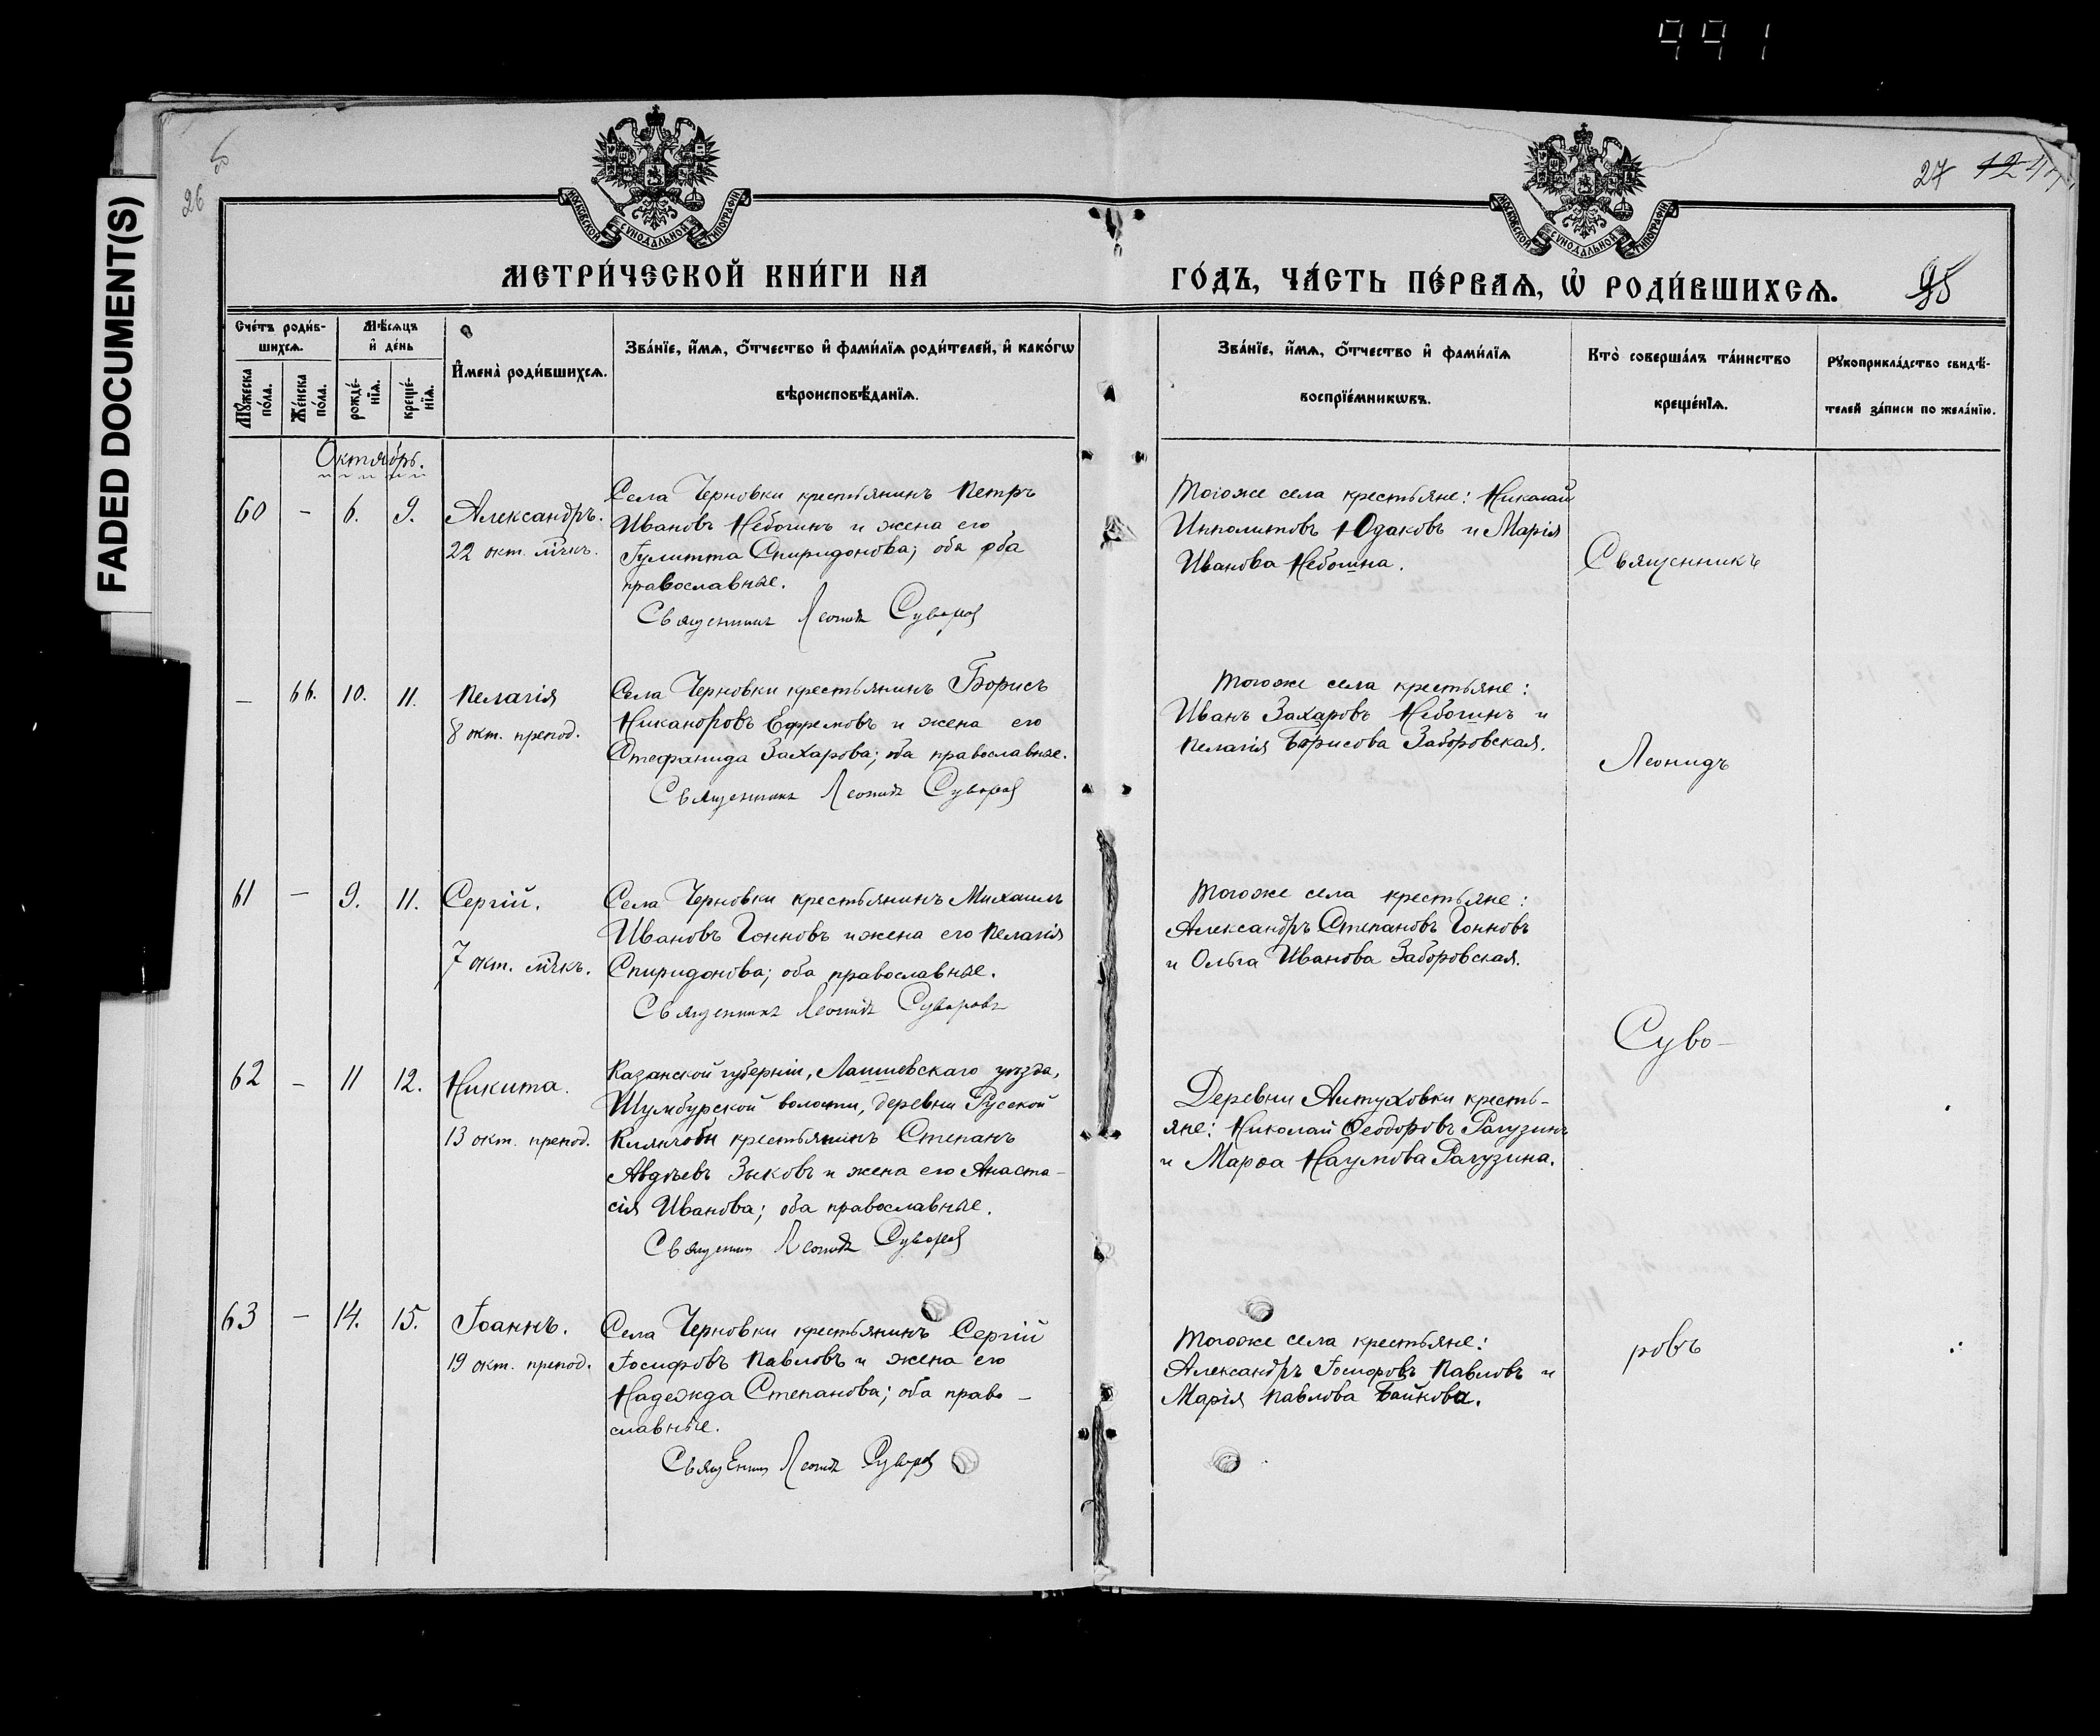 991
FADED DOCUMENT(S)
26
27
МОСКОВСКОЙ СѴНОДАЛЬНОЙ ТИПОГРАФІИ
МОСКОВСКОЙ СѴНОДАЛЬНОЙ ТИПОГРАФІИ
МЕТРИ́ЧЕСКОЙ КНИ́ГИ НА
ГО́ДЪ, ЧА́СТЬ ПЕ́РВАѦ, Ѡ҆ РОДИ́ВШИХСѦ.
95
Сче́тъ роди́в-
шихсѧ.
Мѣ́сѧцъ
и҆ де́нь
Мꙋ́жеска по́ла.
Же́нска по́ла.
рожде́-
нїѧ.
креще́-
нїѧ.
И҆мена̀ роди́вшихсѧ.
Зва́нїе, и҆́мѧ, ѻ҆́тчество и҆ фами́лїѧ роди́телей, и҆ како́гѡ
вѣроисповѣ́данїѧ.
Зва́нїе, и҆́мѧ, ѻ҆́тчество и҆ фами́лїѧ
воспрїе́мникѡвъ.
Кто̀ соверша́лъ та́инство
креще́нїѧ.
Рꙋкоприкла́дство свидѣ́-
телей за́писи по жела́нїю.
Октябрь.
60 – 6. 9. Александръ.
22 окт. мчкъ.
Села Черновки крестьянинъ Петръ
Ивановъ Небогинъ и жена его
Іулитта Спиридонова; оба оба
православные.
Священникъ Леонидъ Суворовъ
Тогоже села крестьяне: Николай
Ипполитовъ Юдаковъ и Марія
Иванова Небогина.
Священникъ
– 66. 10. 11. Пелагія
8 окт. препод.
Села Черновки крестьянинъ Борисъ
Никаноровъ Ефремовъ и жена его
Стефанида Захарова; оба православные.
Священникъ Леонидъ Суворовъ
Тогоже села крестьяне:
Иванъ Захаровъ Небогинъ и
Пелагія Борисова Заборовская.
Леонидъ
61 – 9. 11. Сергій.
7 окт. мчкъ.
Села Черновки крестьянинъ Михаилъ
Ивановъ Гонновъ и жена его Пелагія
Спиридонова; оба православные.
Священникъ Леонидъ Суворовъ
Тогоже села крестьяне:
Александръ Степановъ Гонновъ
и Ольга Иванова Заборовская.
Суво-
62 – 11 12. Никита.
13 окт. препод.
Казанской губерніи, Лаишевскаго уѣзда,
Шумбурской волости, деревни Русской
крестьянинъ Степанъ
Авдѣевъ Зыковъ и жена его Анаста-
сія Иванова; оба православные.
Священник Леонидъ Суворовъ
Деревни Алтуховки кресть-
яне: Николай Ѳеодоровъ Рагузинъ
и Марѳа Наумова Рагузина.
63 – 14. 15. Іоаннъ.
19 окт. препод.
Села Черновки крестьянинъ Сергій
Іосифовъ Павловъ и жена его
Надежда Степанова; оба право-
славные.
Священник Леонидъ Суворовъ
Тогоже села крестьяне:
Александръ Іосифовъ Павловъ и
Марія Павлова Байкова.
ровъ